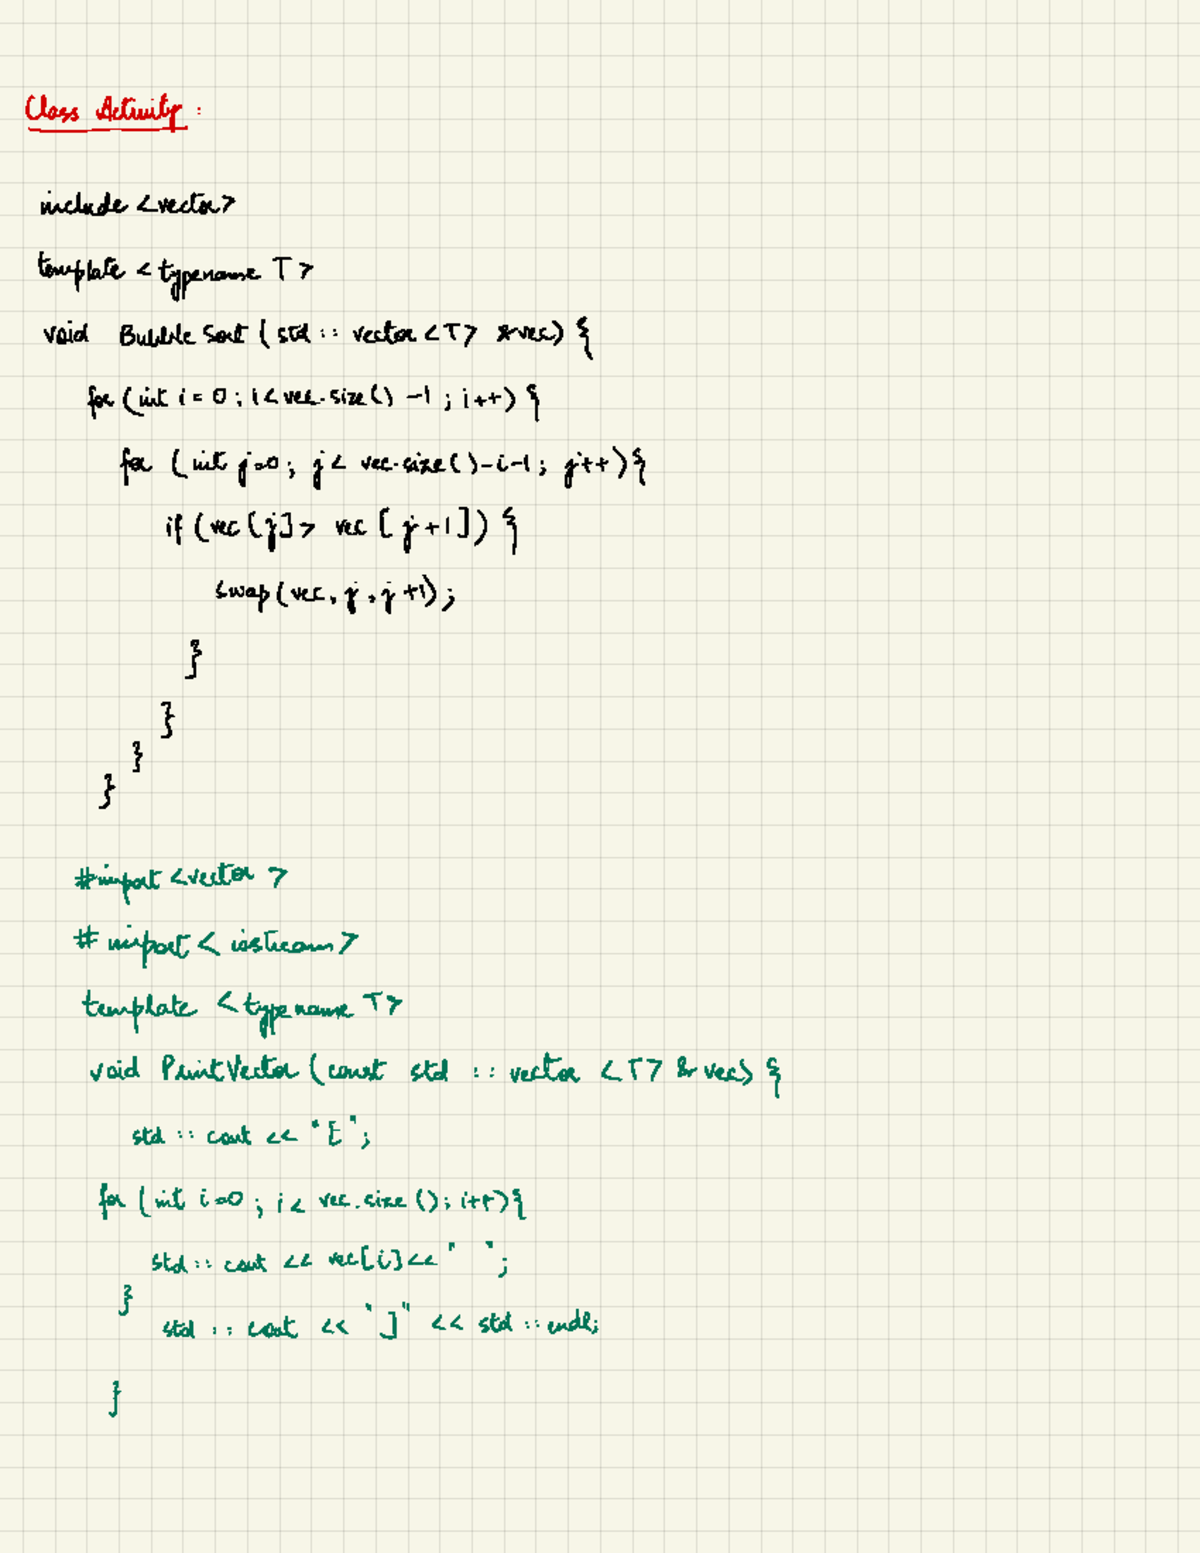 Class Activity :
include <vector>
template < typename T >
void Bubble Sort ( std :: vector < T > &vec) {
for ( int i = 0 ; i < vec.size() -1 ; i++) {
for ( int j=0 ; j < vec.size()-i-1; j++){
if (vec[j]> vec [ j+1]) {
swap(vec, j, j+1);
}
}
}
}
#import <vector >
# import < iostream >
template < typename T>
void PrintVector ( const std :: vector < T > & vec) {
std :: cout << "[";
for ( int i=0 ; i < vec.size (); i++){
std :: cout << vec[i]<< " ";
}
std :: cout << "]" << std :: endl;
}